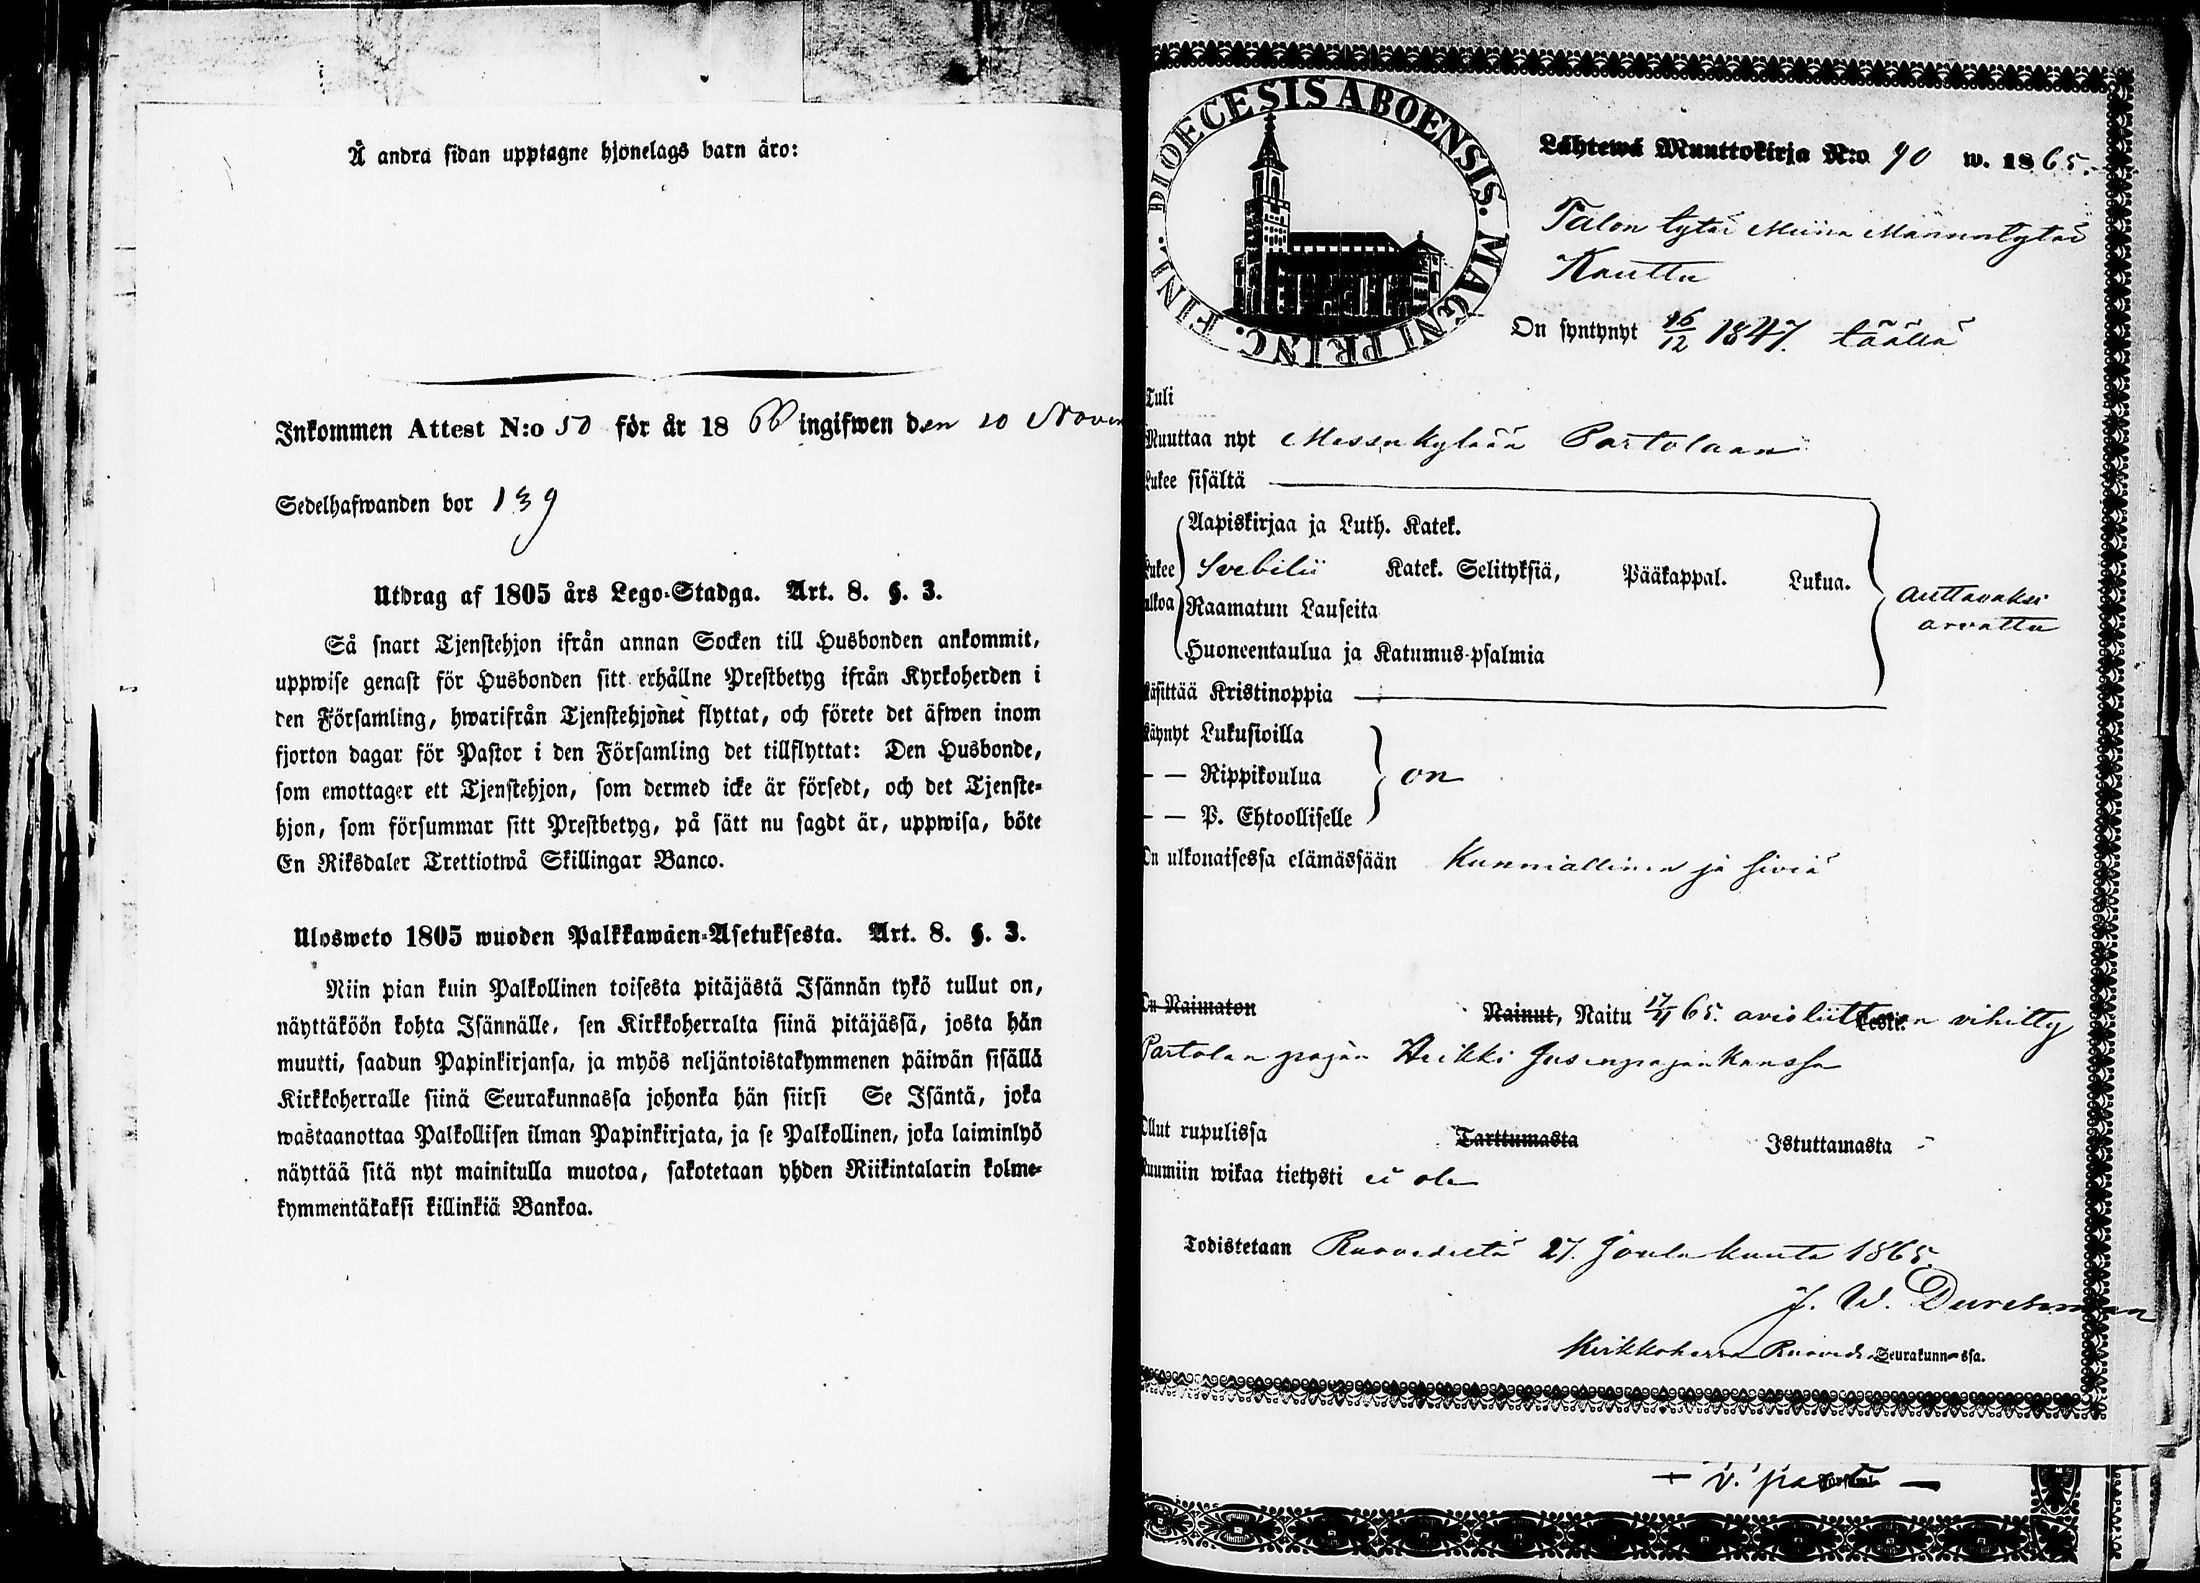 Å andra sidan upptagne hjonelags barn äro:
Inkommen Attest N:o 50 för år 18 66 ingifwen den 20 Novem
Sedelhafwanden bor 139
Utdrag af 1805 års Lego-Stadga. Art. 8. §. 3.
Så snart Tjenstehjon ifrån annan Socken till Husbonden ankommit,
uppwise genast för Husbonden sitt erhållne Prestbetyg ifrån Kyrkoherden i
den Församling, hwarifrån Tjenstehjonet flyttat, och förete det äfwen inom
fjorton dagar för Pastor i den Församling det tillflyttat: Den Husbonde,
som emottager ett Tjenstehjon, som dermed icke är försedt, och det Tjenste-
hjon, som försummar sitt Prestbetyg, på sätt nu sagdt är, uppwisa, böte
En Riksdaler Trettiotwå Skillingar Banco.
Ulosweto 1805 wuoden Palkkawäen-Asetuksesta. Art. 8. §. 3.
Niin pian kuin Palkollinen toisesta pitäjästä Isännän tykö tullut on,
näyttäköön kohta Isännälle, sen Kirkkoherralta siinä pitäjässä, josta hän
muutti, saadun Papinkirjansa, ja myös neljäntoistakymmenen päiwän sisällä
Kirkkoherralle siinä Seurakunnassa johonka hän siirsi Se Isäntä, joka
wastaanottaa Palkollisen ilman Papinkirjata, ja se Palkollinen, joka laiminlyö
näyttää sitä nyt mainitulla muotoa, sakotetaan yhden Riikintalarin kolme-
kymmentäkaksi killinkiä Bankoa.
DIOECESIS ABOENSIS. MAGNI PRINC. FINL.
Lähtewä Muuttokirja N:o 90 w. 1865.
Talon tytär Miina Männntytär
Kauttu
On syntynyt 16/12 1847. täällä
Tuli
Muuttaa nyt Messukylään Partolaan
Lukee sisältä
Aapiskirjaa ja Luth. Katek.
Lukee Svebilii Katek. Selityksiä, Pääkappal. Lukua.
ulkoa Raamatun Lauseita
Huoneentaulua ja Katumus-psalmia
auttavaksi
arvattu
Käsittää Kristinoppia
Käynyt Lukusioilla
— — Rippikoulua on
— — P. Ehtoolliselle
On ulkonaisessa elämässään Kunniallinen ja siviä
On Naimaton Nainut, Naitu 65. avioliittoon Leski. vihitty
Partolan pojan Heikki kanssa
Ollut rupulissa Tarttumasta Istuttamasta -
Ruumiin wikaa tietysti ei ole
Todistetaan Ruovedeltä 27. Joulukuuta 1865.
J. W. Durchman
Kirkkoherra Ruovede Seurakunnassa.
— v. past —